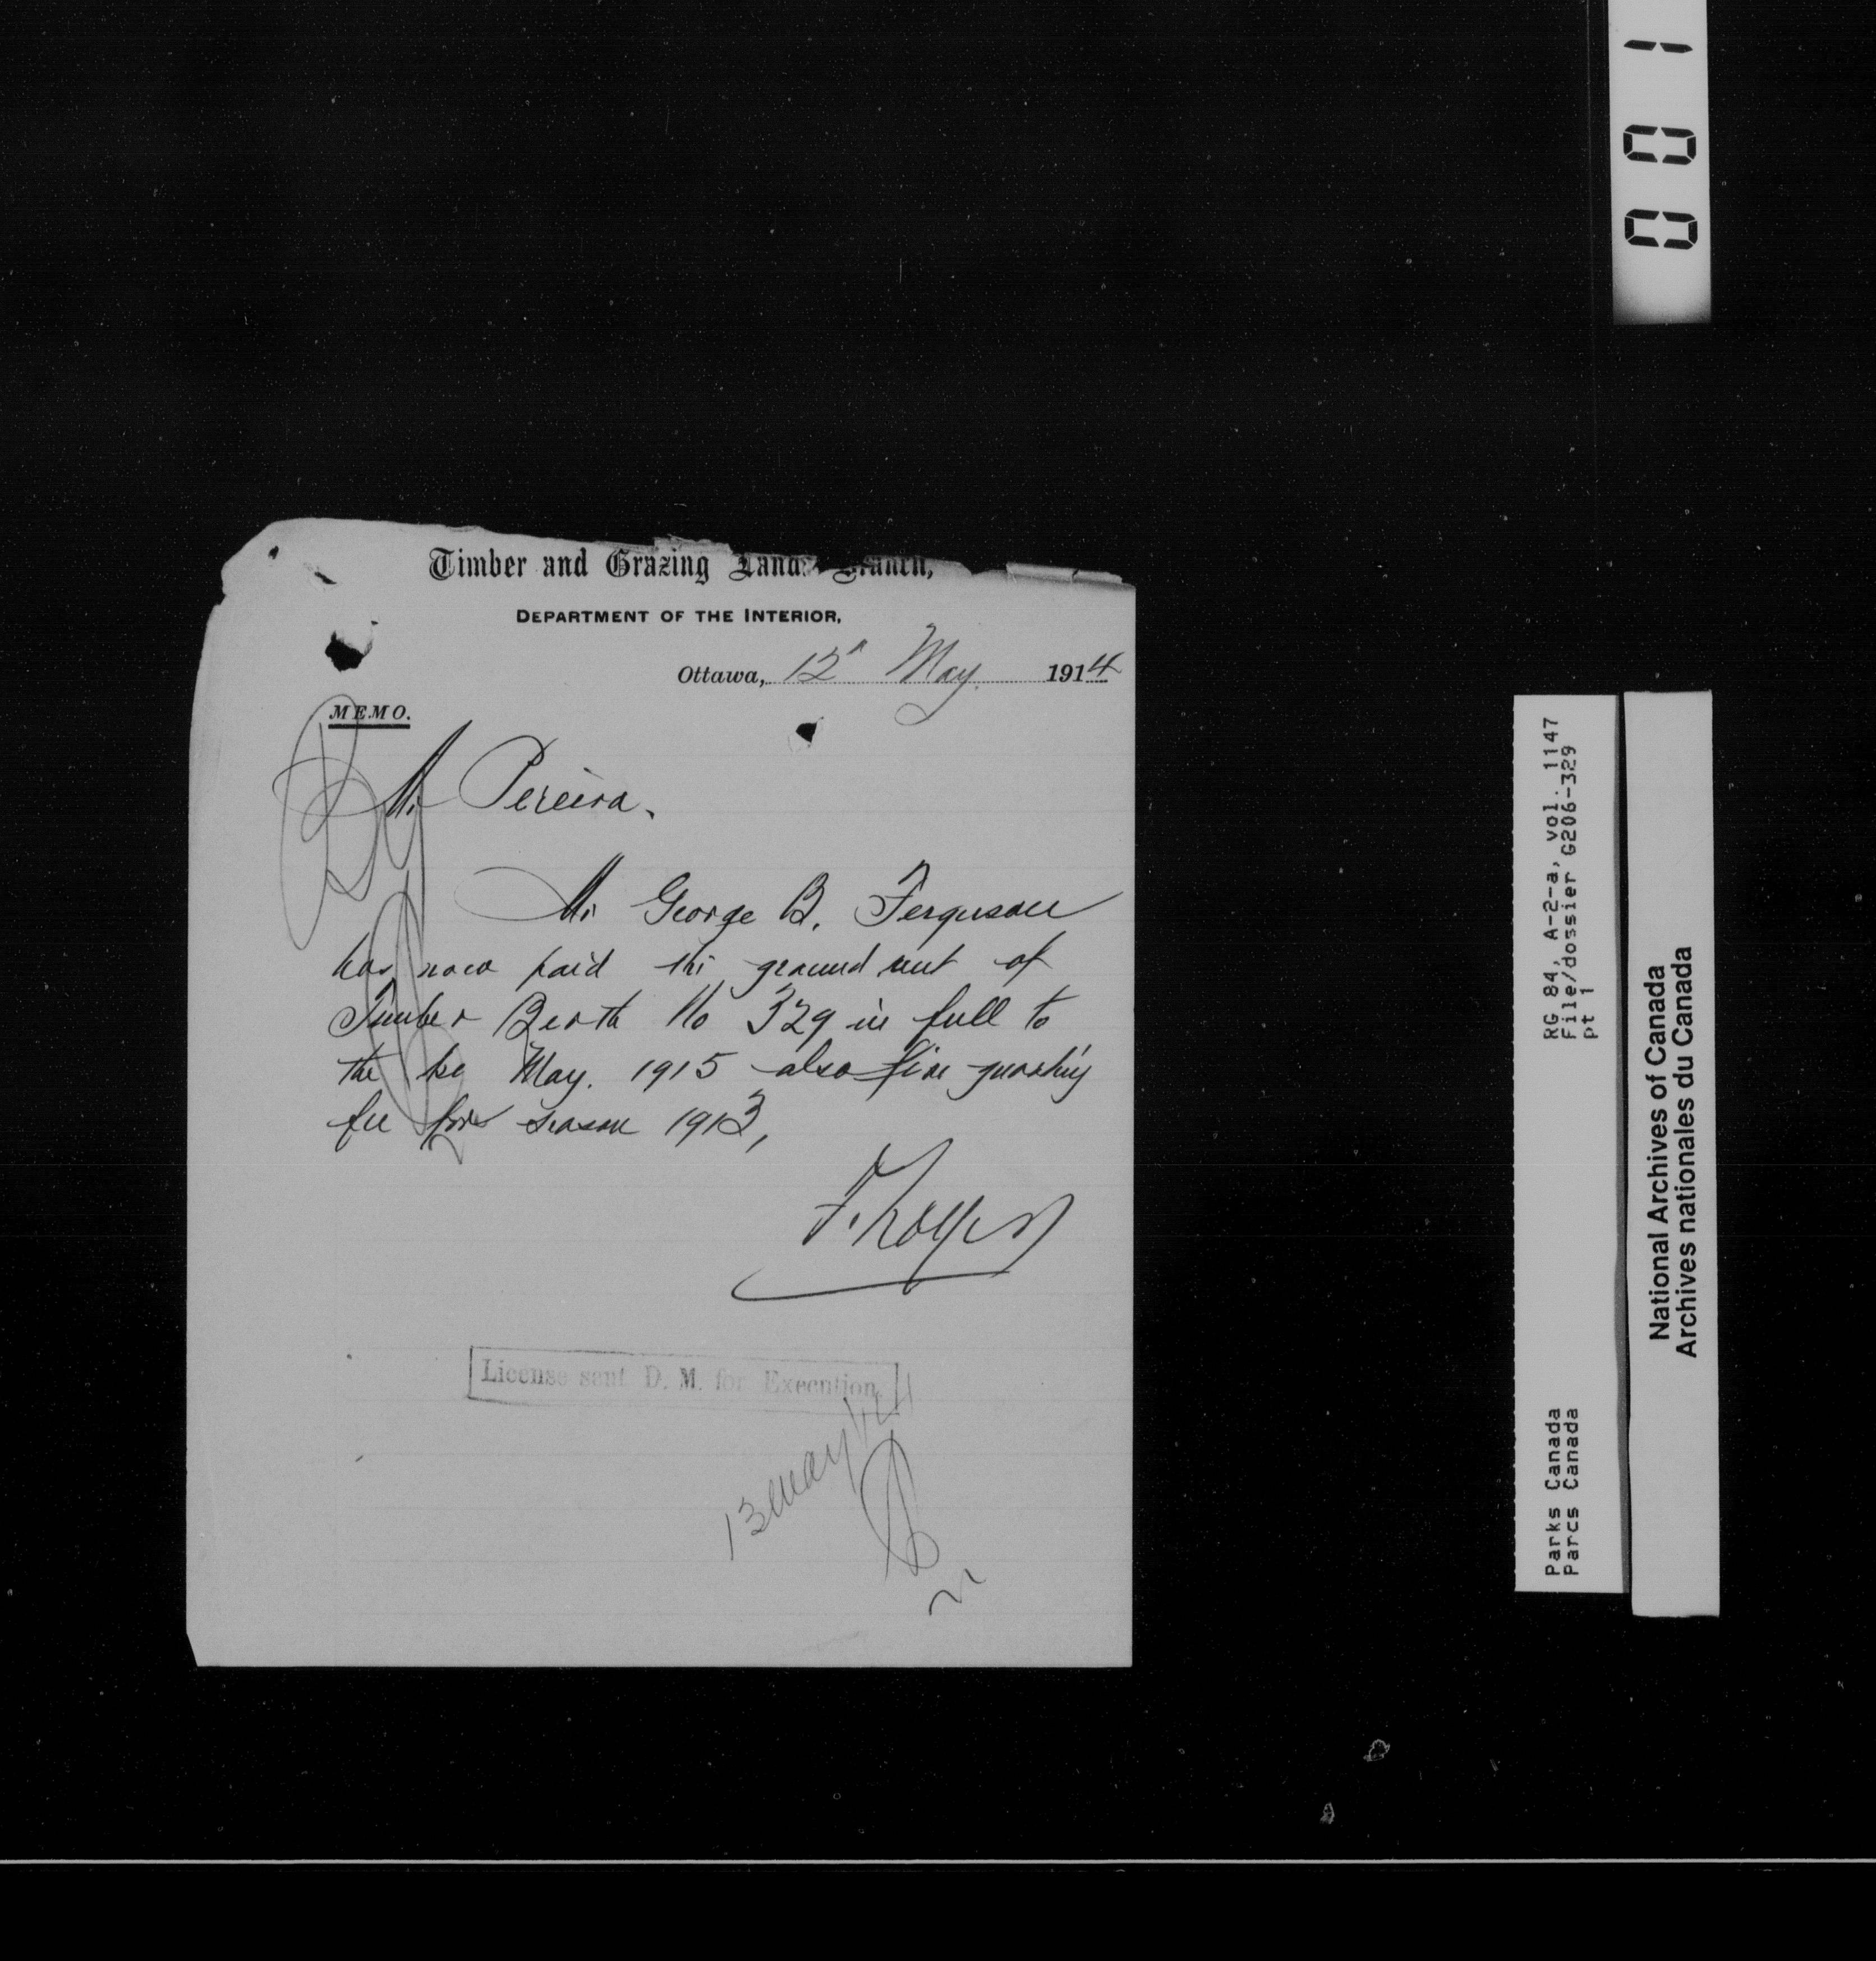 001
Timber and Grazing Lands Branch,
DEPARTMENT OF THE INTERIOR,
Ottawa, 12" May. 1914
MEMO.
Mr Pereira.
Mr George B. Ferguson
has now paid the ground rent of
Timber Berth No 329 in full to
the May. 1915 also fire guarding
fee for season 1913,
License sent D. M. for Execution
13 May/14
RG 84, A-2-a, vol. 1147
File/dossier G206-329
pt 1
Parks Canada
Parcs Canada
National Archives of Canada
Archives nationales du Canada